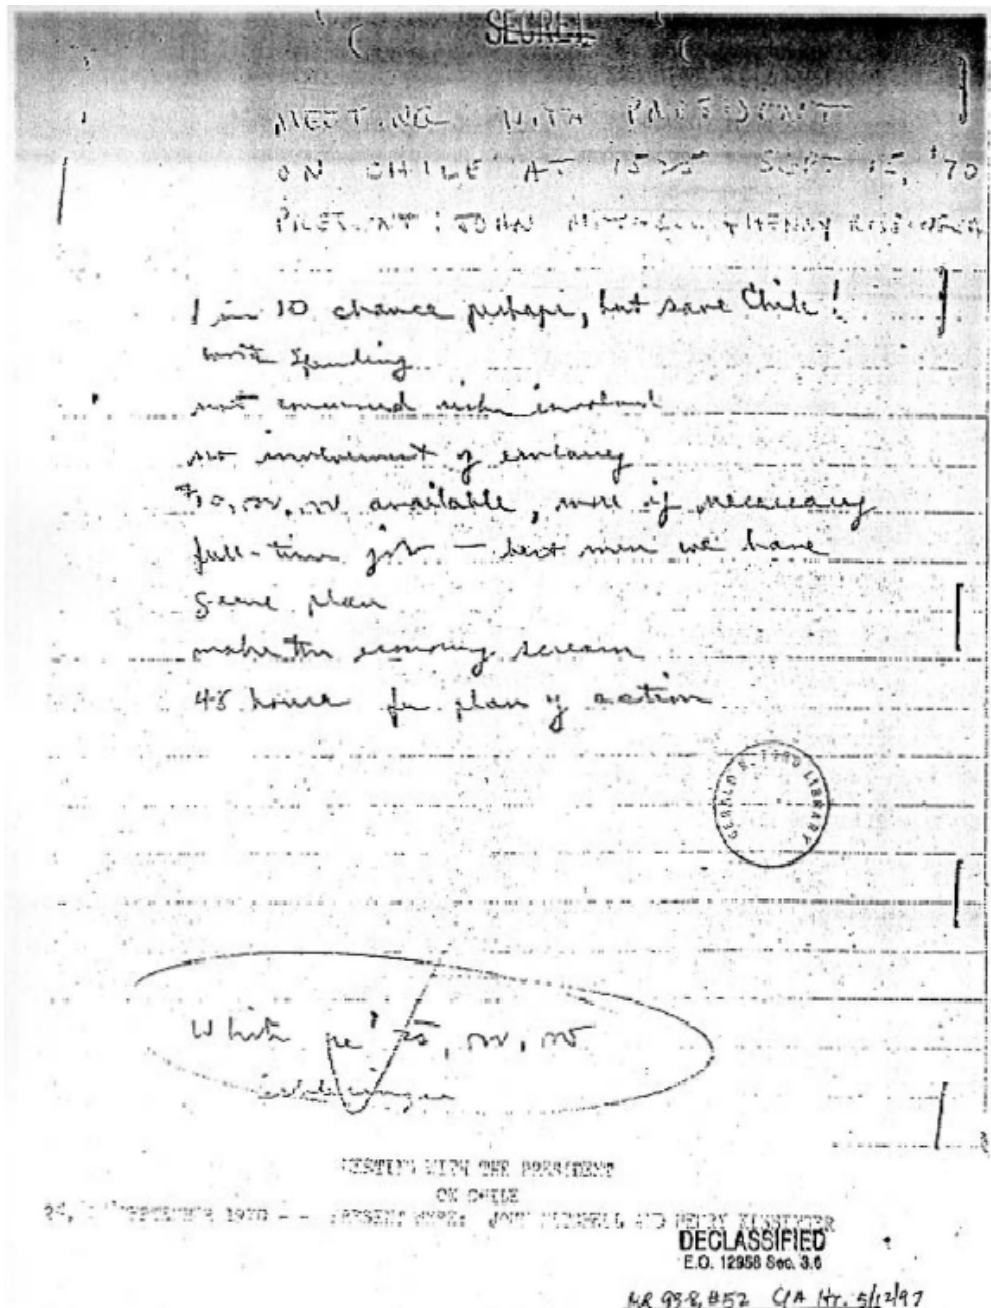 SECRET
MEETING WITH PRESIDENT
ON CHILE AT 1525 SEPT 15, '70
PRESENT: JOHN MITCHELL & HENRY KISSINGER
1 in 10 chance perhaps, but save Chile!
worth spending
not concerned risks involved
no involvement of embassy
$10,000,000 available, more if necessary
full-time job — best men we have
game plan
make the economy scream
48 hours for plan of action
GERALD R. FORD LIBRARY
White
MEETING WITH THE PRESIDENT
ON CHILE
SEPTEMBER 1970 -- PRESENT WERE: JOHN MITCHELL AND HENRY KISSINGER
DECLASSIFIED
E.O. 12958 Sec. 3.6
MR 98-8, #52 CIA ltr. 5/12/97